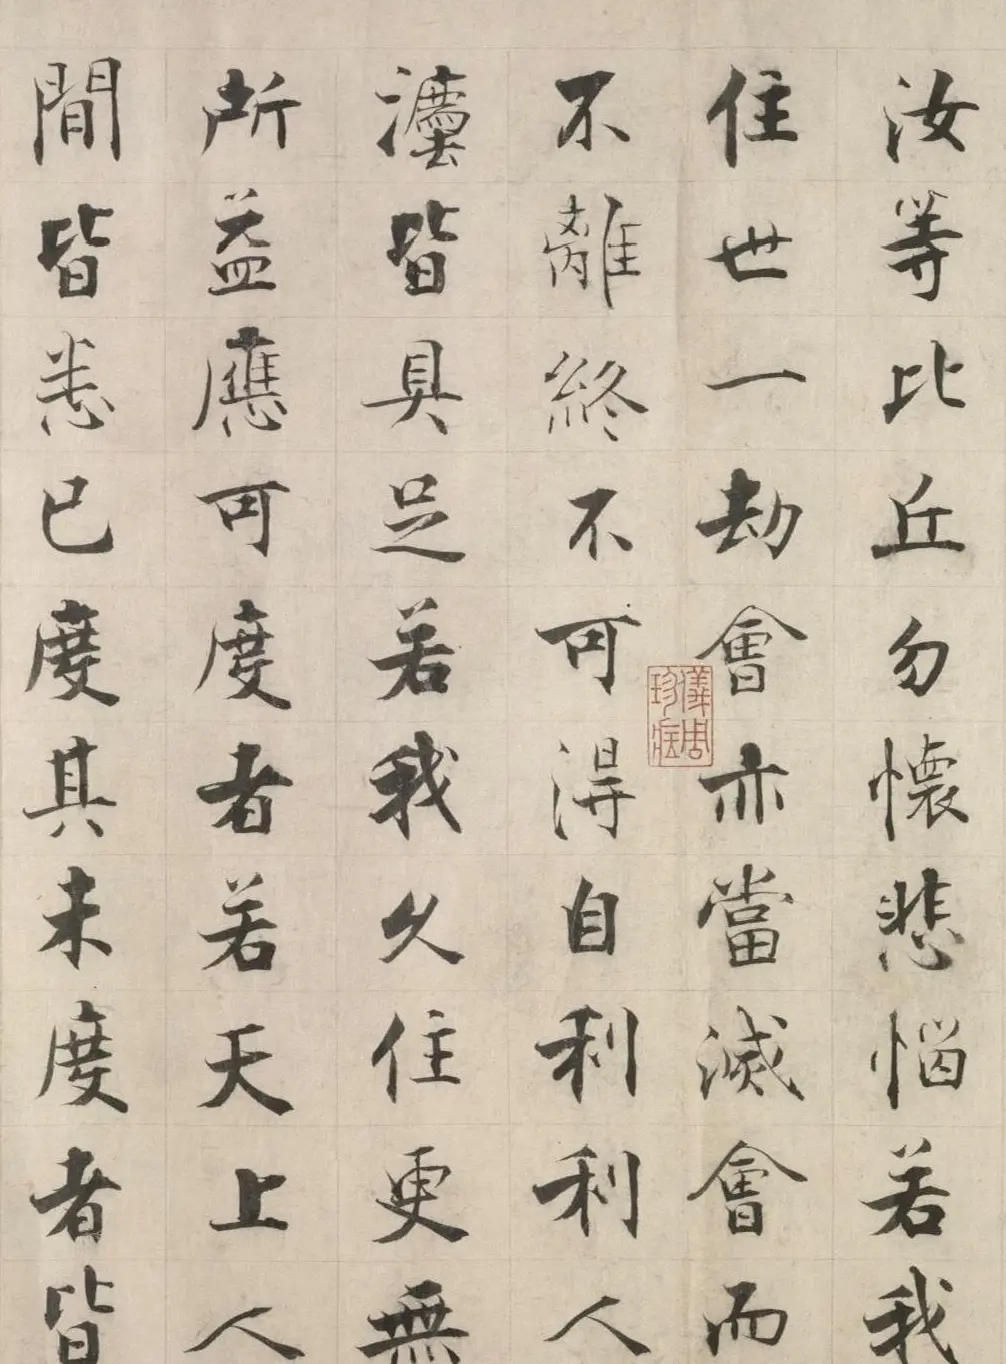 汝等比丘勿懷悲惱若我
住世一劫會亦當滅會而
不離終不可得自利利人
灋皆具足若我久住更無
所益應可度者若天上人
間皆悉已度其未度者皆
儀周珍藏